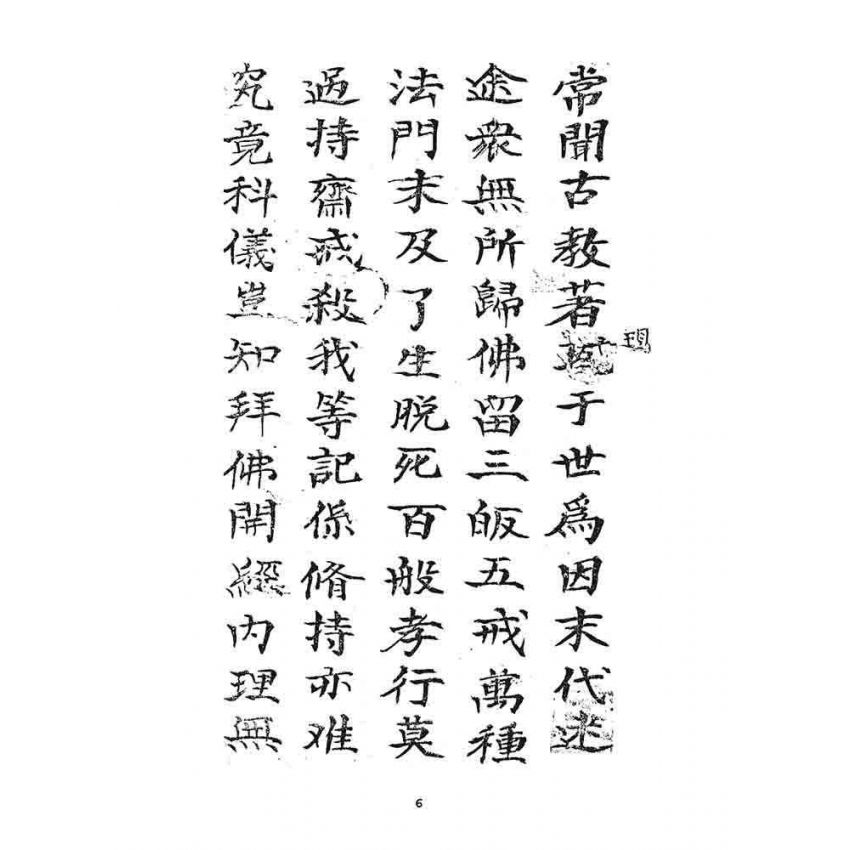 常聞古教著現于世爲因末代迷
途衆無所歸佛留三皈五戒萬種
法門末及了生脱死百般孝行莫
過持齋戒殺我等記係脩持亦难
究竟科儀豈知拜佛開經内理無
6